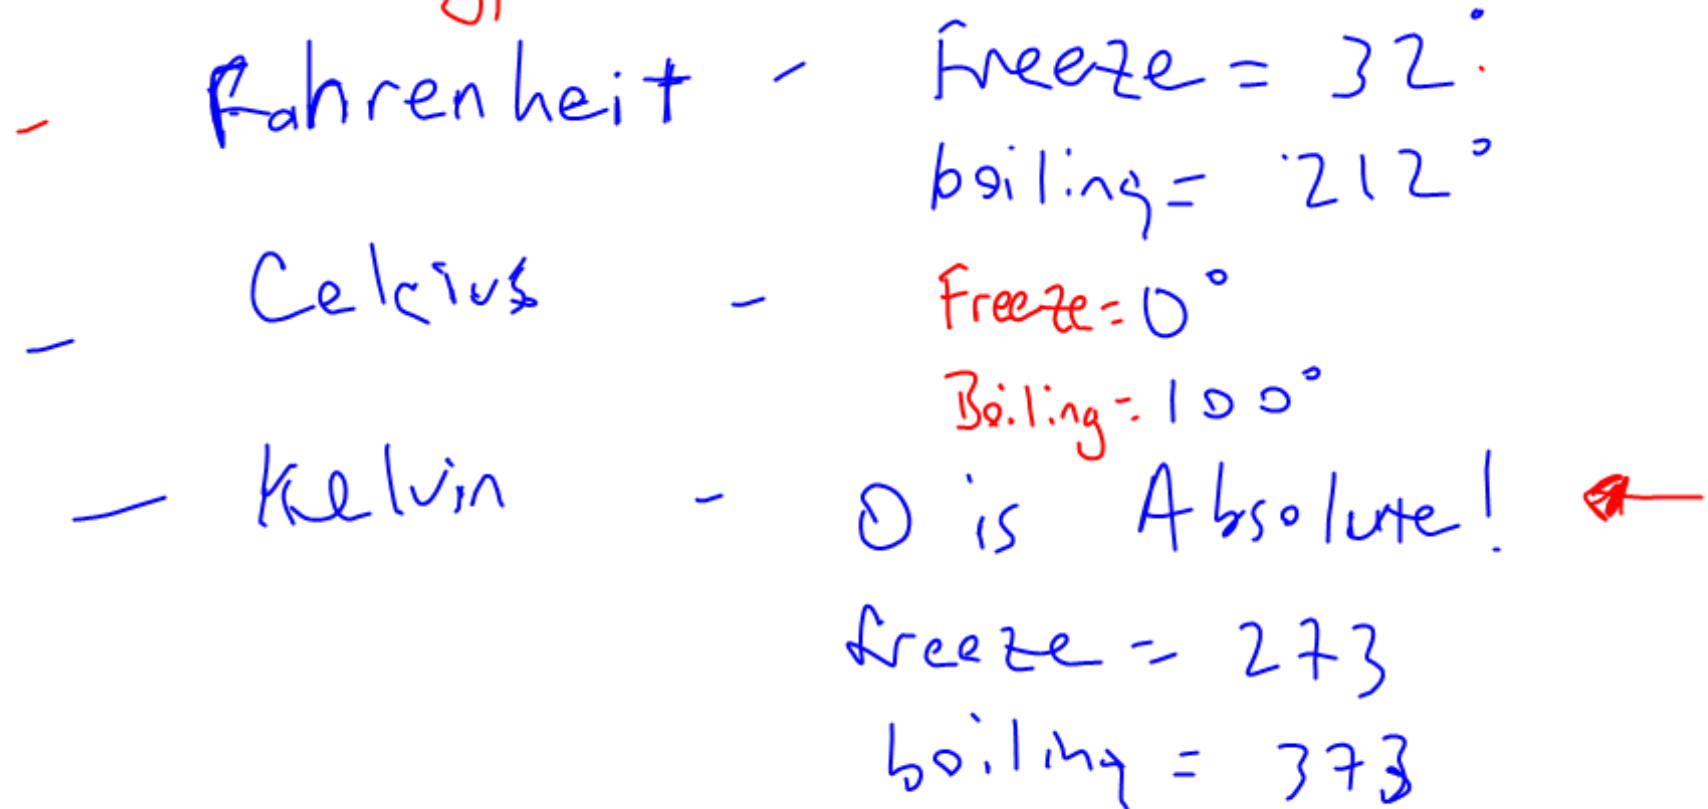 - Fahrenheit - Freeze = 32°
boiling = 212°
- Celcius - Freeze = 0°
Boiling = 100°
- Kelvin - 0 is Absolute!
freeze = 273
boiling = 373